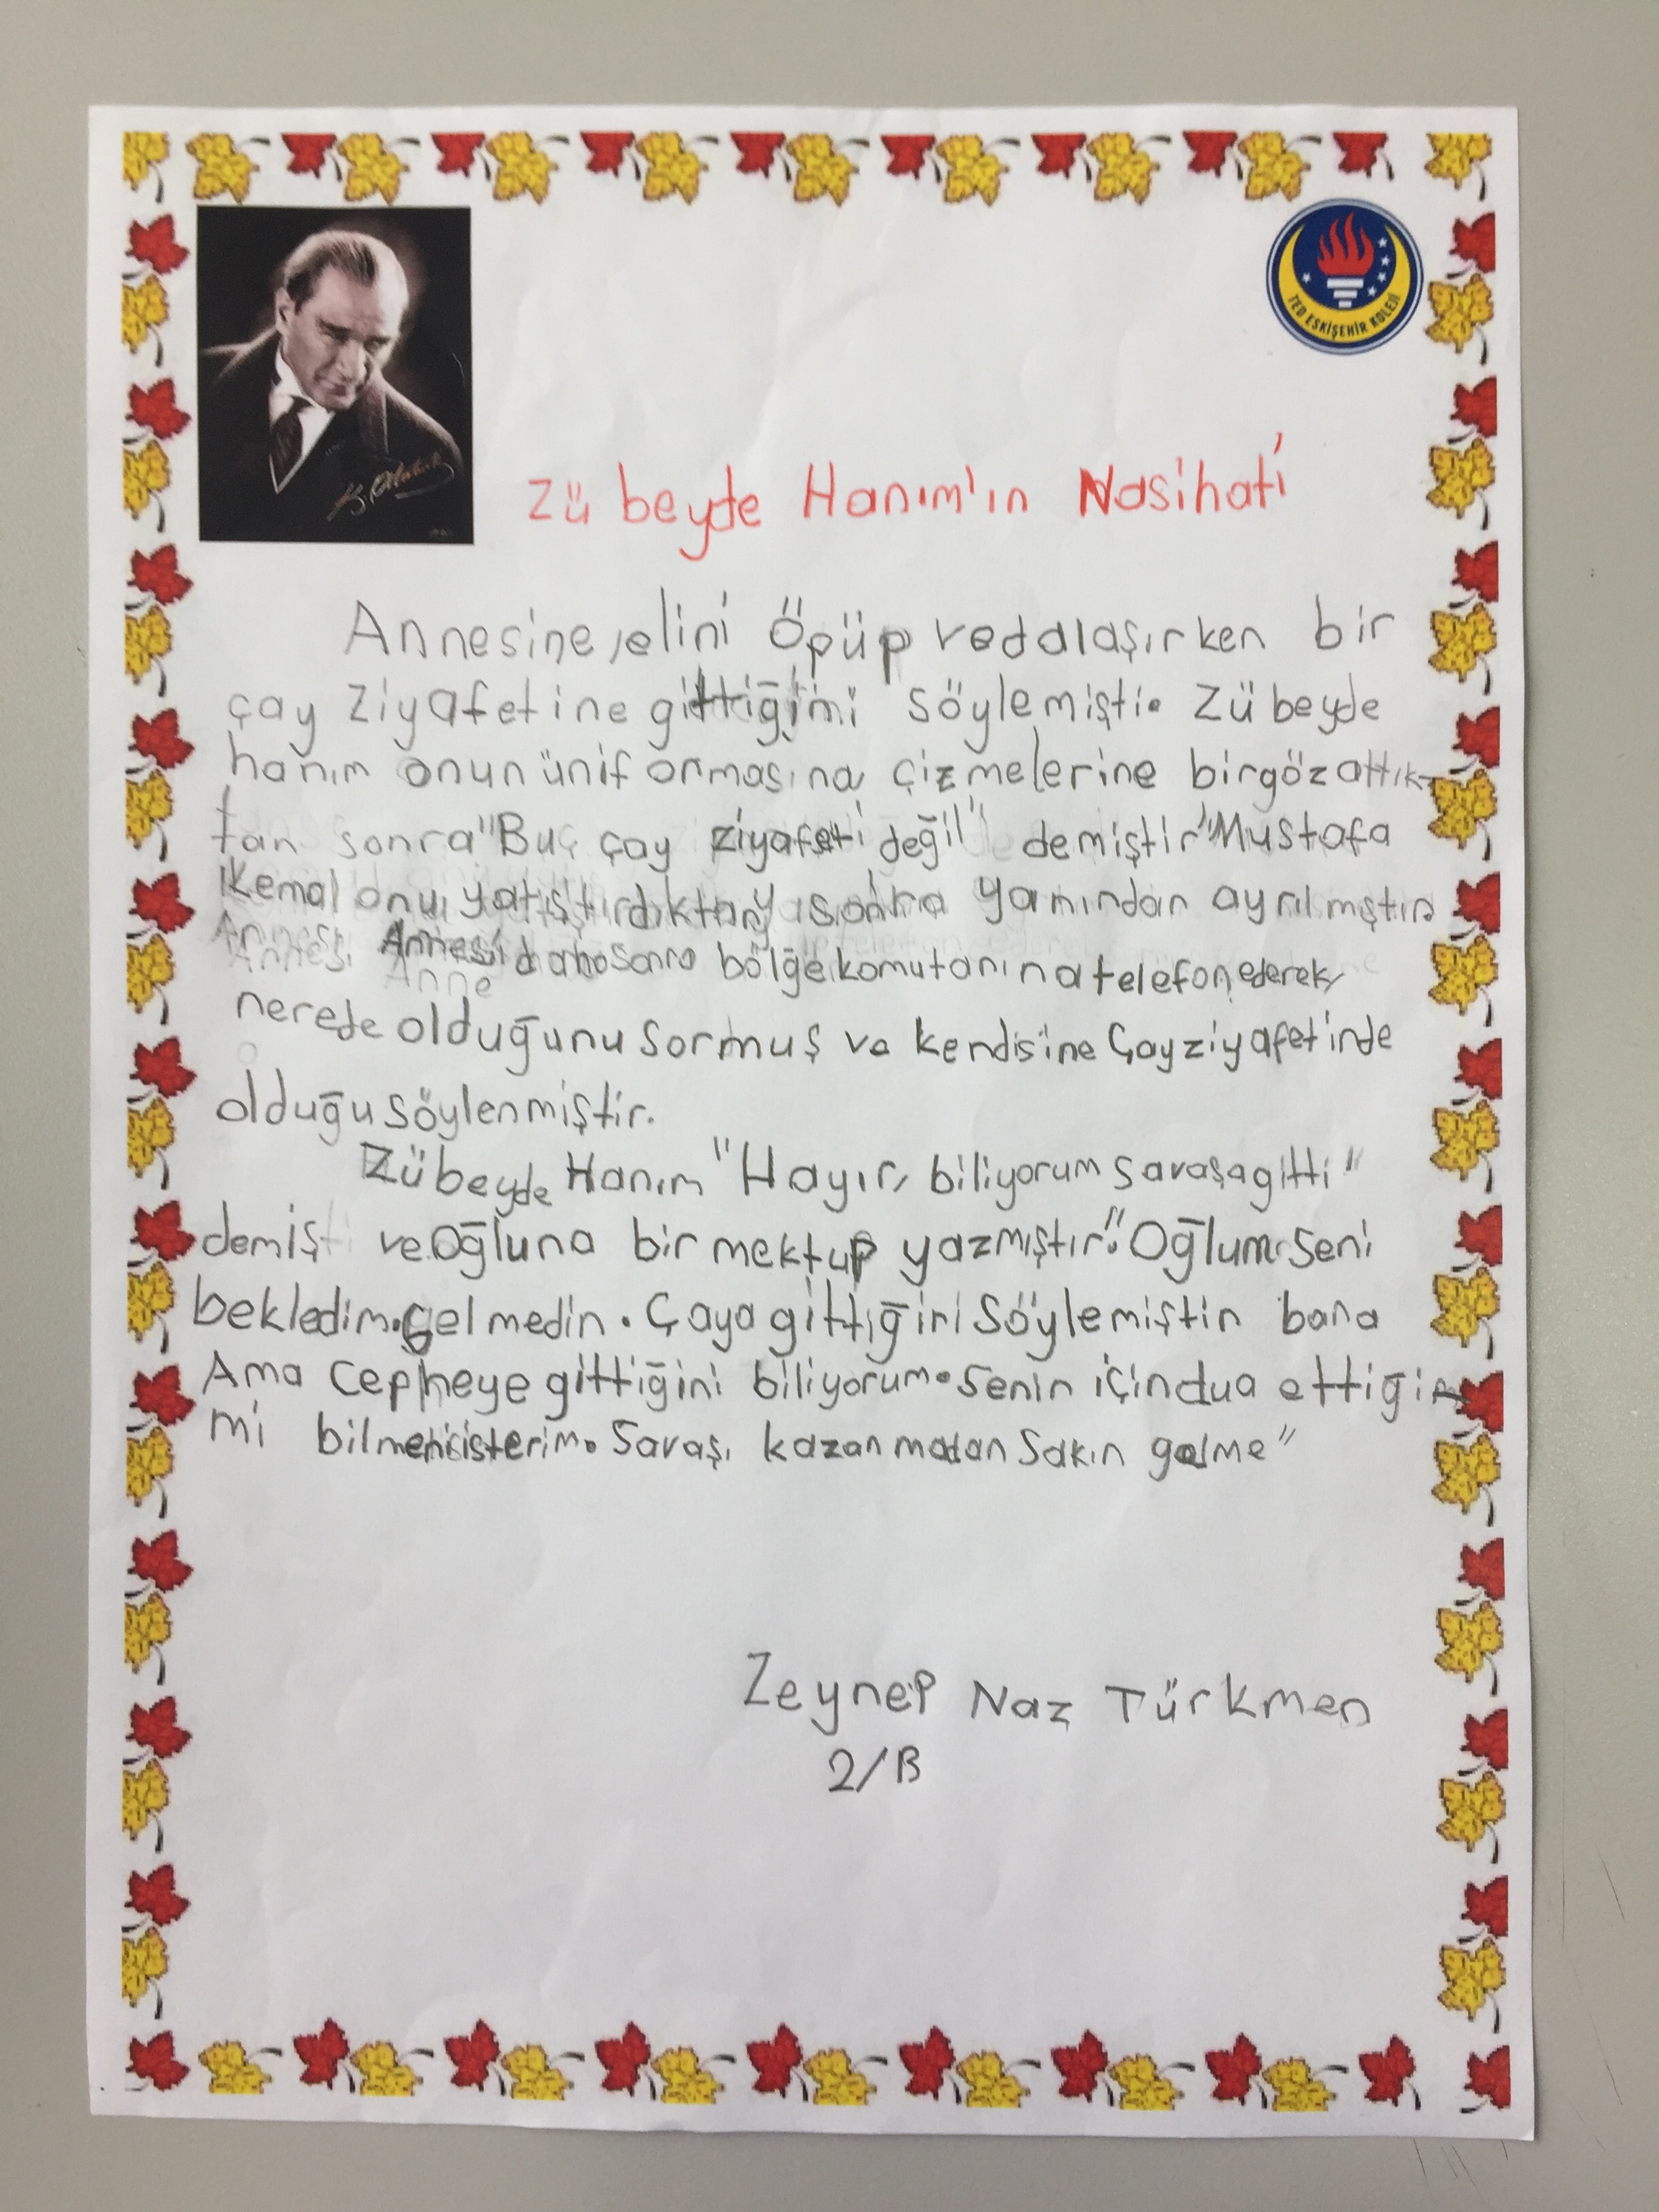 K. Atatürk
TED ESKİŞEHİR KOLEJİ
Zübeyde Hanım'ın Nasihati
Annesine, elini öpüp vedalaşırken bir
çay ziyafetine gittiğini söylemişti. Zübeyde
hanım onun üniformasına çizmelerine birgöz attık-
tan sonra "Bu çay ziyafeti değil" demiştir "Mustafa
Kemal onu yatıştırdıktan sonra yanından ayrılmıştır
Annesi daha sonra bölge komutanına telefon ederek,
nerede olduğunu sormuş ve kendisine Çay ziyafetinde
olduğu söylenmiştir.
Zübeyde Hanım "Hayır, biliyorum savaşa gitti"
demiş ve oğluna bir mektup yazmıştır." Oğlum seni
bekledim. Gelmedin. Çaya gittiğini söylemiştin bana
Ama cepheye gittiğini biliyorum. Senin için dua ettiğin
mi bilmeni isterim. Savaşı kazanmadan sakın gelme"
Zeynep Naz Türkmen
2/B